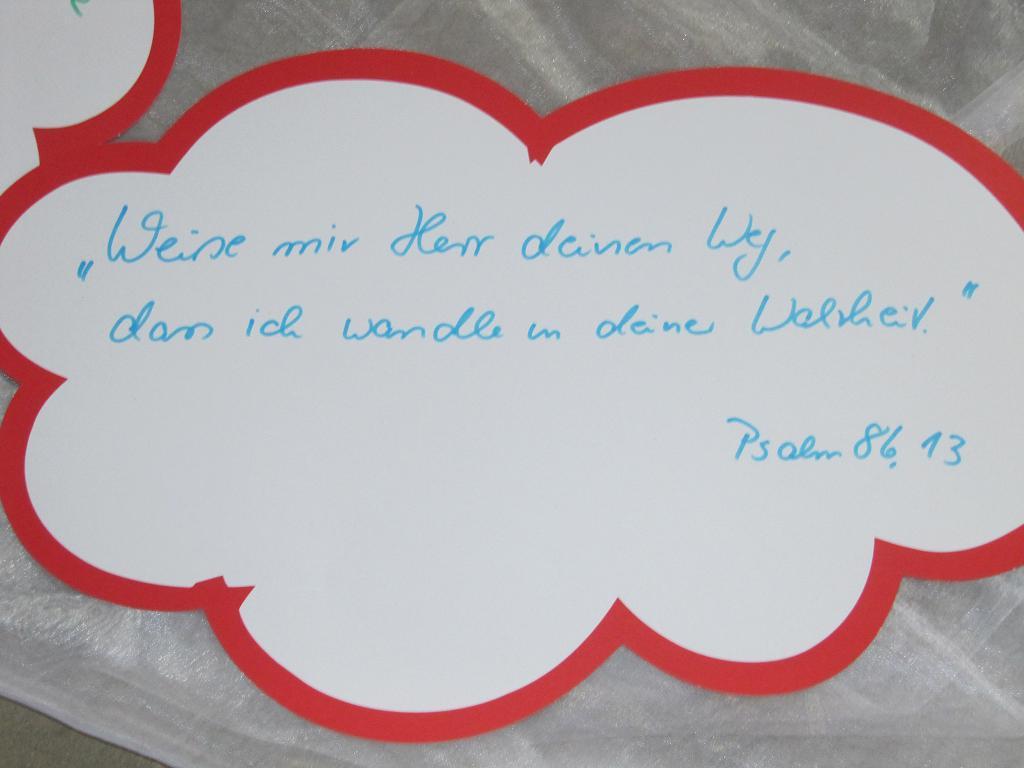 „Weise mir Herr deinen Weg,
dass ich wandle in deiner Wahrheit."
Psalm 86, 13